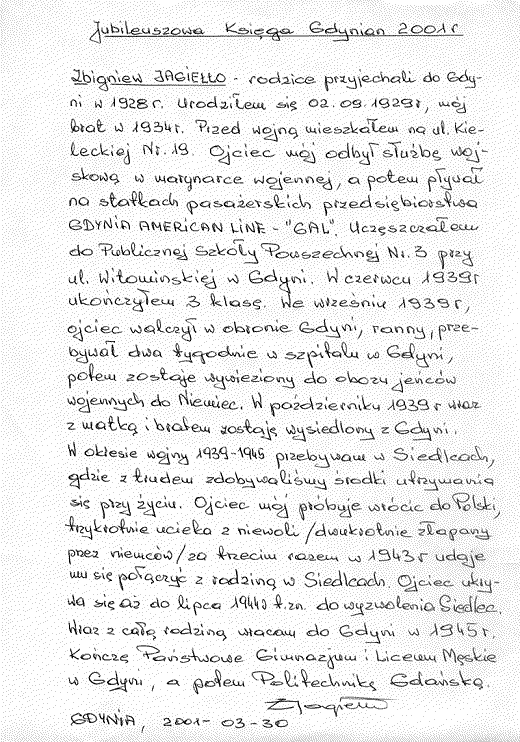 Jubileuszowa Księga Gdynian 2001r
Zbigniew JAGIEŁŁO - rodzice przyjechali do Gdy-
ni w 1928r. Urodziłem się 02.09.1929r, mój
brat w 1934r. Przed wojną mieszkałem na ul. Kie-
leckiej Nr. 19. Ojciec mój odbył służbę woj-
skową w marynarce wojennej, a potem pływał
na statkach pasażerskich przedsiębiorstwa
GDYNIA AMERICAN LINE - "GAL". Uczęszczałem
do Publicznej Szkoły Powszechnej Nr. 3 przy
ul. Witomińskiej w Gdyni. W czerwcu 1939r
ukończyłem 3 klasę. We wrześniu 1939r,
ojciec walczył w obronie Gdyni, ranny, prze-
bywał dwa tygodnie w szpitalu w Gdyni,
potem zostaje wywieziony do obozu jeńców
wojennych do Niemiec. W październiku 1939r wraz
z matką i bratem zostaję wysiedlony z Gdyni.
W okresie wojny 1939-1945 przebywam w Siedlcach,
gdzie z trudem zdobywaliśmy środki utrzymania
się przy życiu. Ojciec mój próbuje wrócić do Polski,
trzykrotnie ucieka z niewoli /dwukrotnie złapany
przez niemców/ za trzecim razem w 1943r udaje
mu się połączyć z rodziną w Siedlcach. Ojciec ukry-
wa się aż do lipca 1944r t.zn. do wyzwolenia Siedlec.
Wraz z całą rodziną wracam do Gdyni w 1945r.
Kończę Państwowe Gimnazjum i Liceum Męskie
w Gdyni, a potem Politechnikę Gdańską.
ZJagiełło
GDYNIA, 2001-03-30